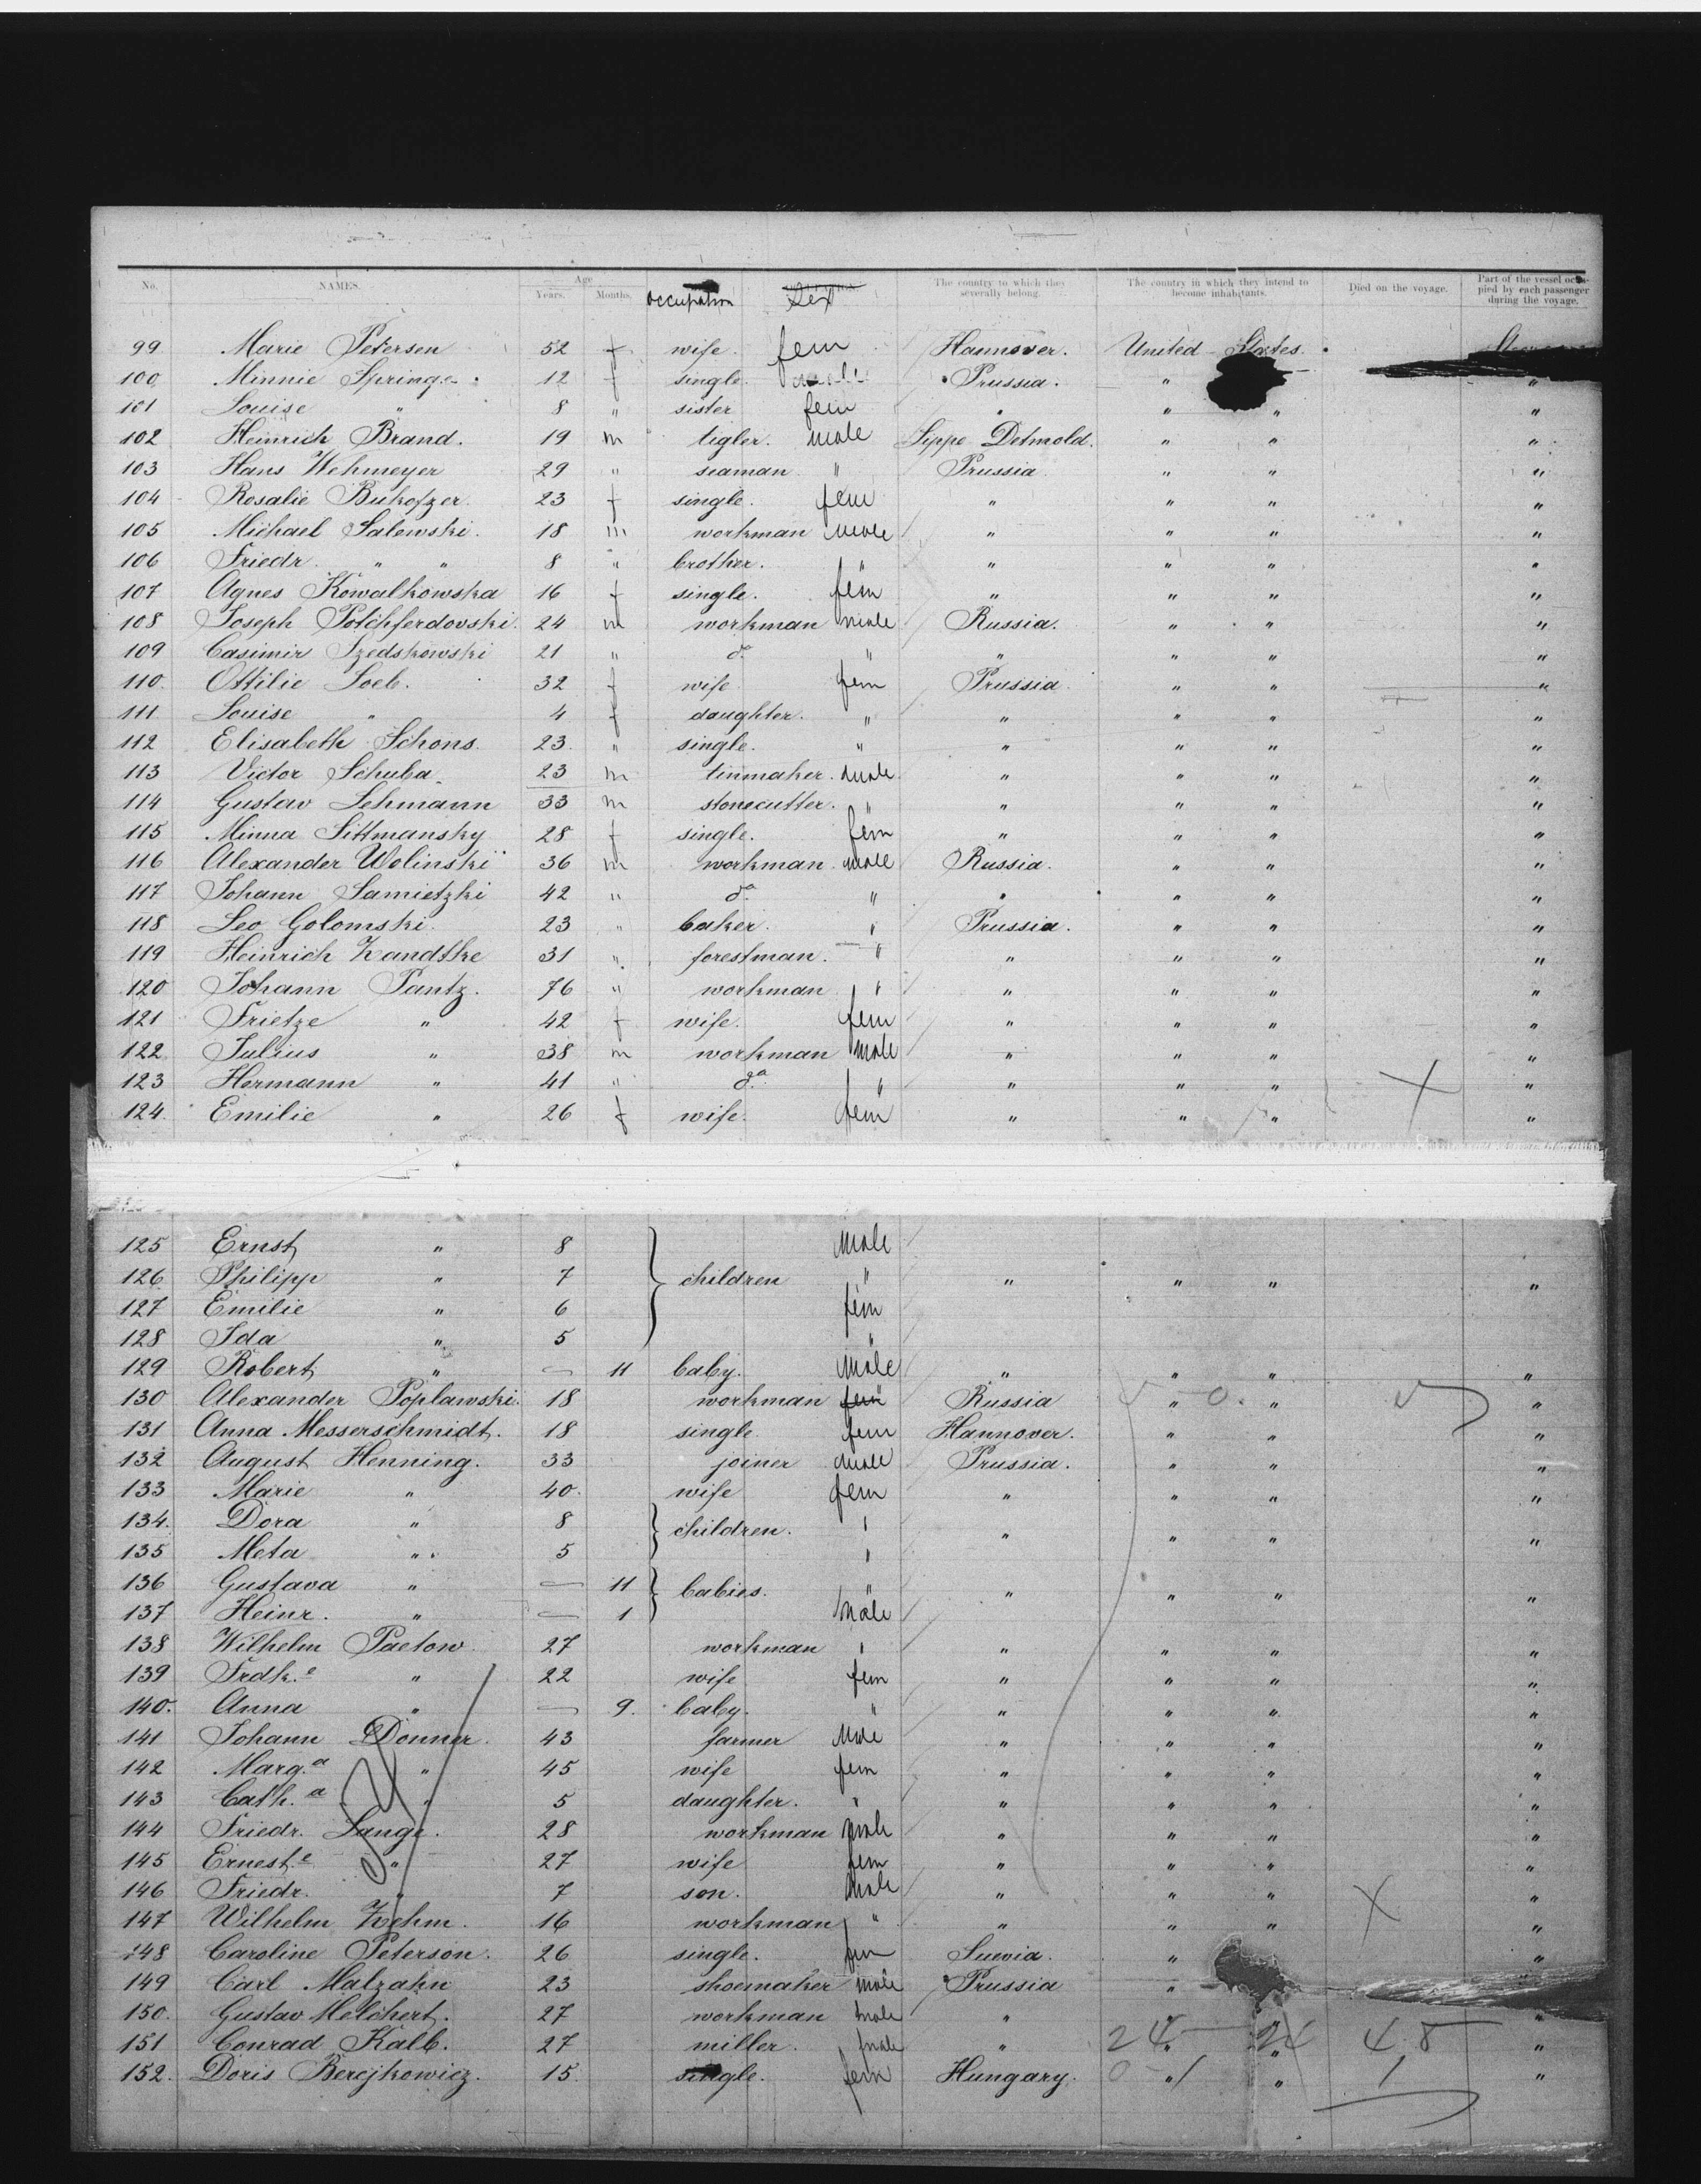 No. NAMES. Age Years. Months. occupation Sex The country to which they severally belong. The country in which they intend to become inhabitants. Died on the voyage. Part of the vessel occupied by each passenger during the voyage.
99 Marie Petersen 52 f wife. fem Hannover. United States.
100 Minnie Springe 12 f single. Prussia. " "
101 Louise " 8 " sister fem " " " "
102 Heinrich Brand. 19 m tigler. male Lippe Detmold. " " "
103 Hans Wehmeyer 29 " seaman " Prussia " " "
104 Rosalie Bukofzer 23 f single. fem " " " "
105 Michael Salewski. 18 m workman male " " " "
106 Friedr. " " 8 " brother. " " " " "
107 Agnes Kowalkowska 16 f single. fem " " " "
108 Joseph Potchferdovski. 24 m workman male Russia. " " "
109 Casimir Szedskowski 21 " do " " " " "
110. Ottilie Loeb. 32 f wife fem Prussia " " "
111. Louise " 4 f daughter. " " " " "
112 Elisabeth Schons. 23. " single. " " " " "
113 Victor Schuba. 23 m tinmaker. male " " " "
114 Gustav Lehmann 33 m stonecutter. " " " " "
115 Minna Littmansky 28 f single. fem " " " "
116 Alexander Wolinski 36 m workman. male Russia. " " "
117 Johann Samietzki 42 " do " " " " "
118 Leo Golomski. 23 " baker. " Prussia. " " "
119 Heinrich Zandtke 31 " forestman. " " " " "
120 Johann Pantz. 76 " workman " " " " "
121 Frietze " 42 f wife. fem " " " "
122. Julius " 38 m workman male " " " "
123 Hermann " 41 " do " " " " "
124. Emilie " 26 f wife. fem " " " "
125 Ernst " 8 male
126 Philipp " 7 children " " " " "
127 Emilie " 6 fem
128 Ida " 5 "
129 Robert " — 11 baby. male " " " "
130 Alexander Poplawski. 18 workman fem Russia " " "
131 Anna Messerschmidt. 18 single. fem Hannover. " " "
132 August Henning. 33 joiner male Prussia. " " "
133 Marie " 40. wife fem " " " "
134. Dora " 8 children. " " " " "
135 Meta " 5 "
136 Gustava " — 11 babies. " " " " "
137 Heinr. " — 1 male
138 Wilhelm Paetow 27 workman " " " " "
139 Frdk.e " 22 wife fem " " " "
140. Anna " — 9. baby. " " " " "
141 Johann Donner. 43 farmer male " " " "
142 Marg.a " 45 wife fem " " " "
143 Cath.a " 5 daughter. " " " " "
144 Friedr. Lange. 28 workman male " " " "
145 Ernest.e " 27 wife fem " " " "
146 Friedr. " 7 son. male " " " "
147 Wilhelm Zehm. 16 workman " " " " "
148 Caroline Peterson. 26 single. fem Suevia. " "
149 Carl Malzahn 23 shoemaker male Prussia " "
150. Gustav Melchert. 27 workman male " " " "
151 Conrad Kalb. 27 miller. male " " " "
24 24 48
152. Doris Bercjkowicz. 15. single. fem Hungary. " " "
0 1 1